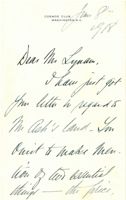 COSMOS CLUB
WASHINGTON, D.C.
Jan 8
Dear Mr Lyman,
I have just got
your letter in regard to
Mr Ash's land. You
omit to make men-
tion of two essential
things — the price